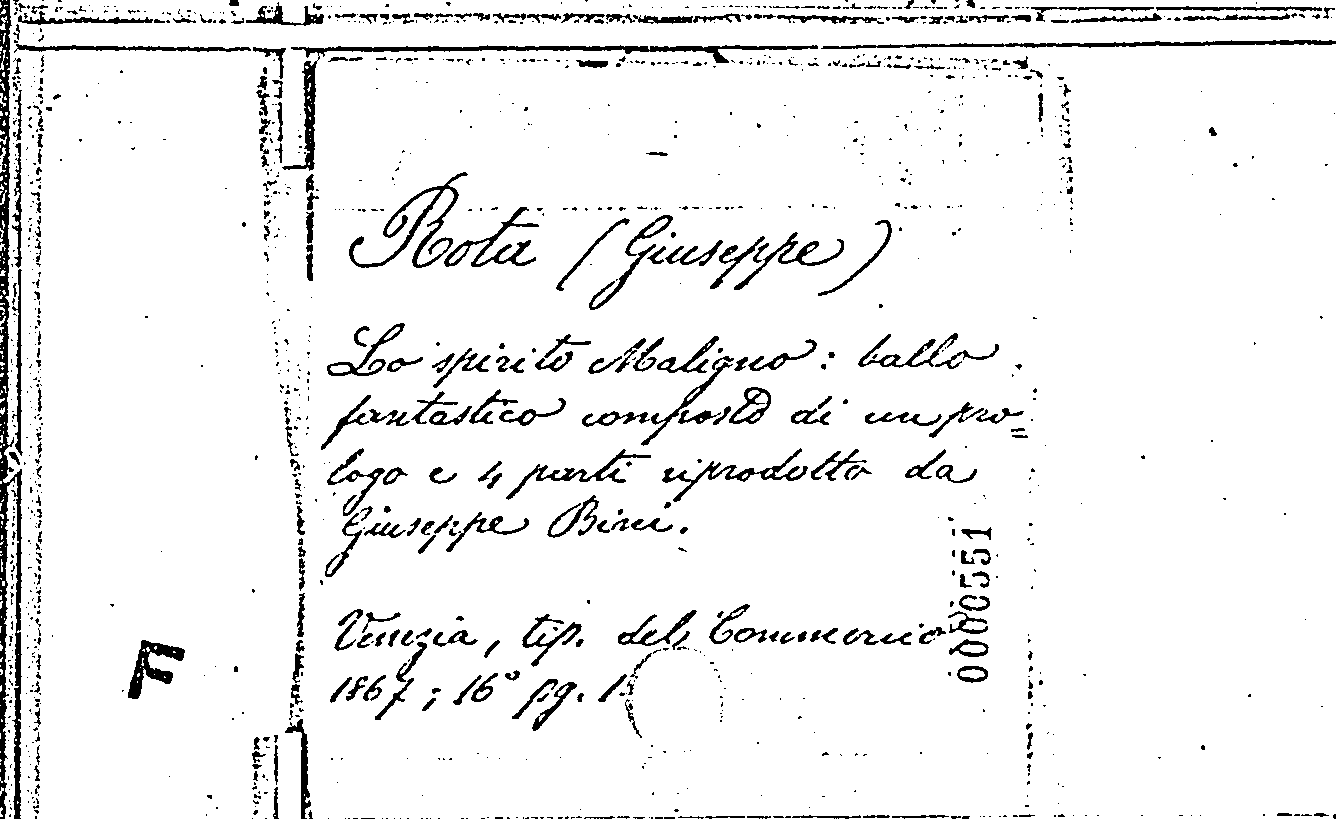 Rota (Giuseppe)
Lo spirito Maligno : ballo
fantastico composto di un pro=
logo e 4 parti riprodotto da
Giuseppe Bini.
Venezia, tip. del Commercio
1867 ; 16° pg.
0000551
F